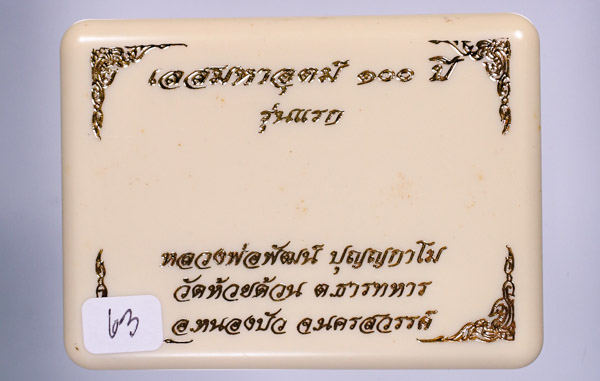 เสือมหาอุตม์ ๑๐๐ ปี
รุ่นแรก
หลวงพ่อพัฒน์ ปุญญกาโม
วัดห้วยด้วน ต.ธารทหาร
อ.หนองบัว จ.นครสวรรค์
63